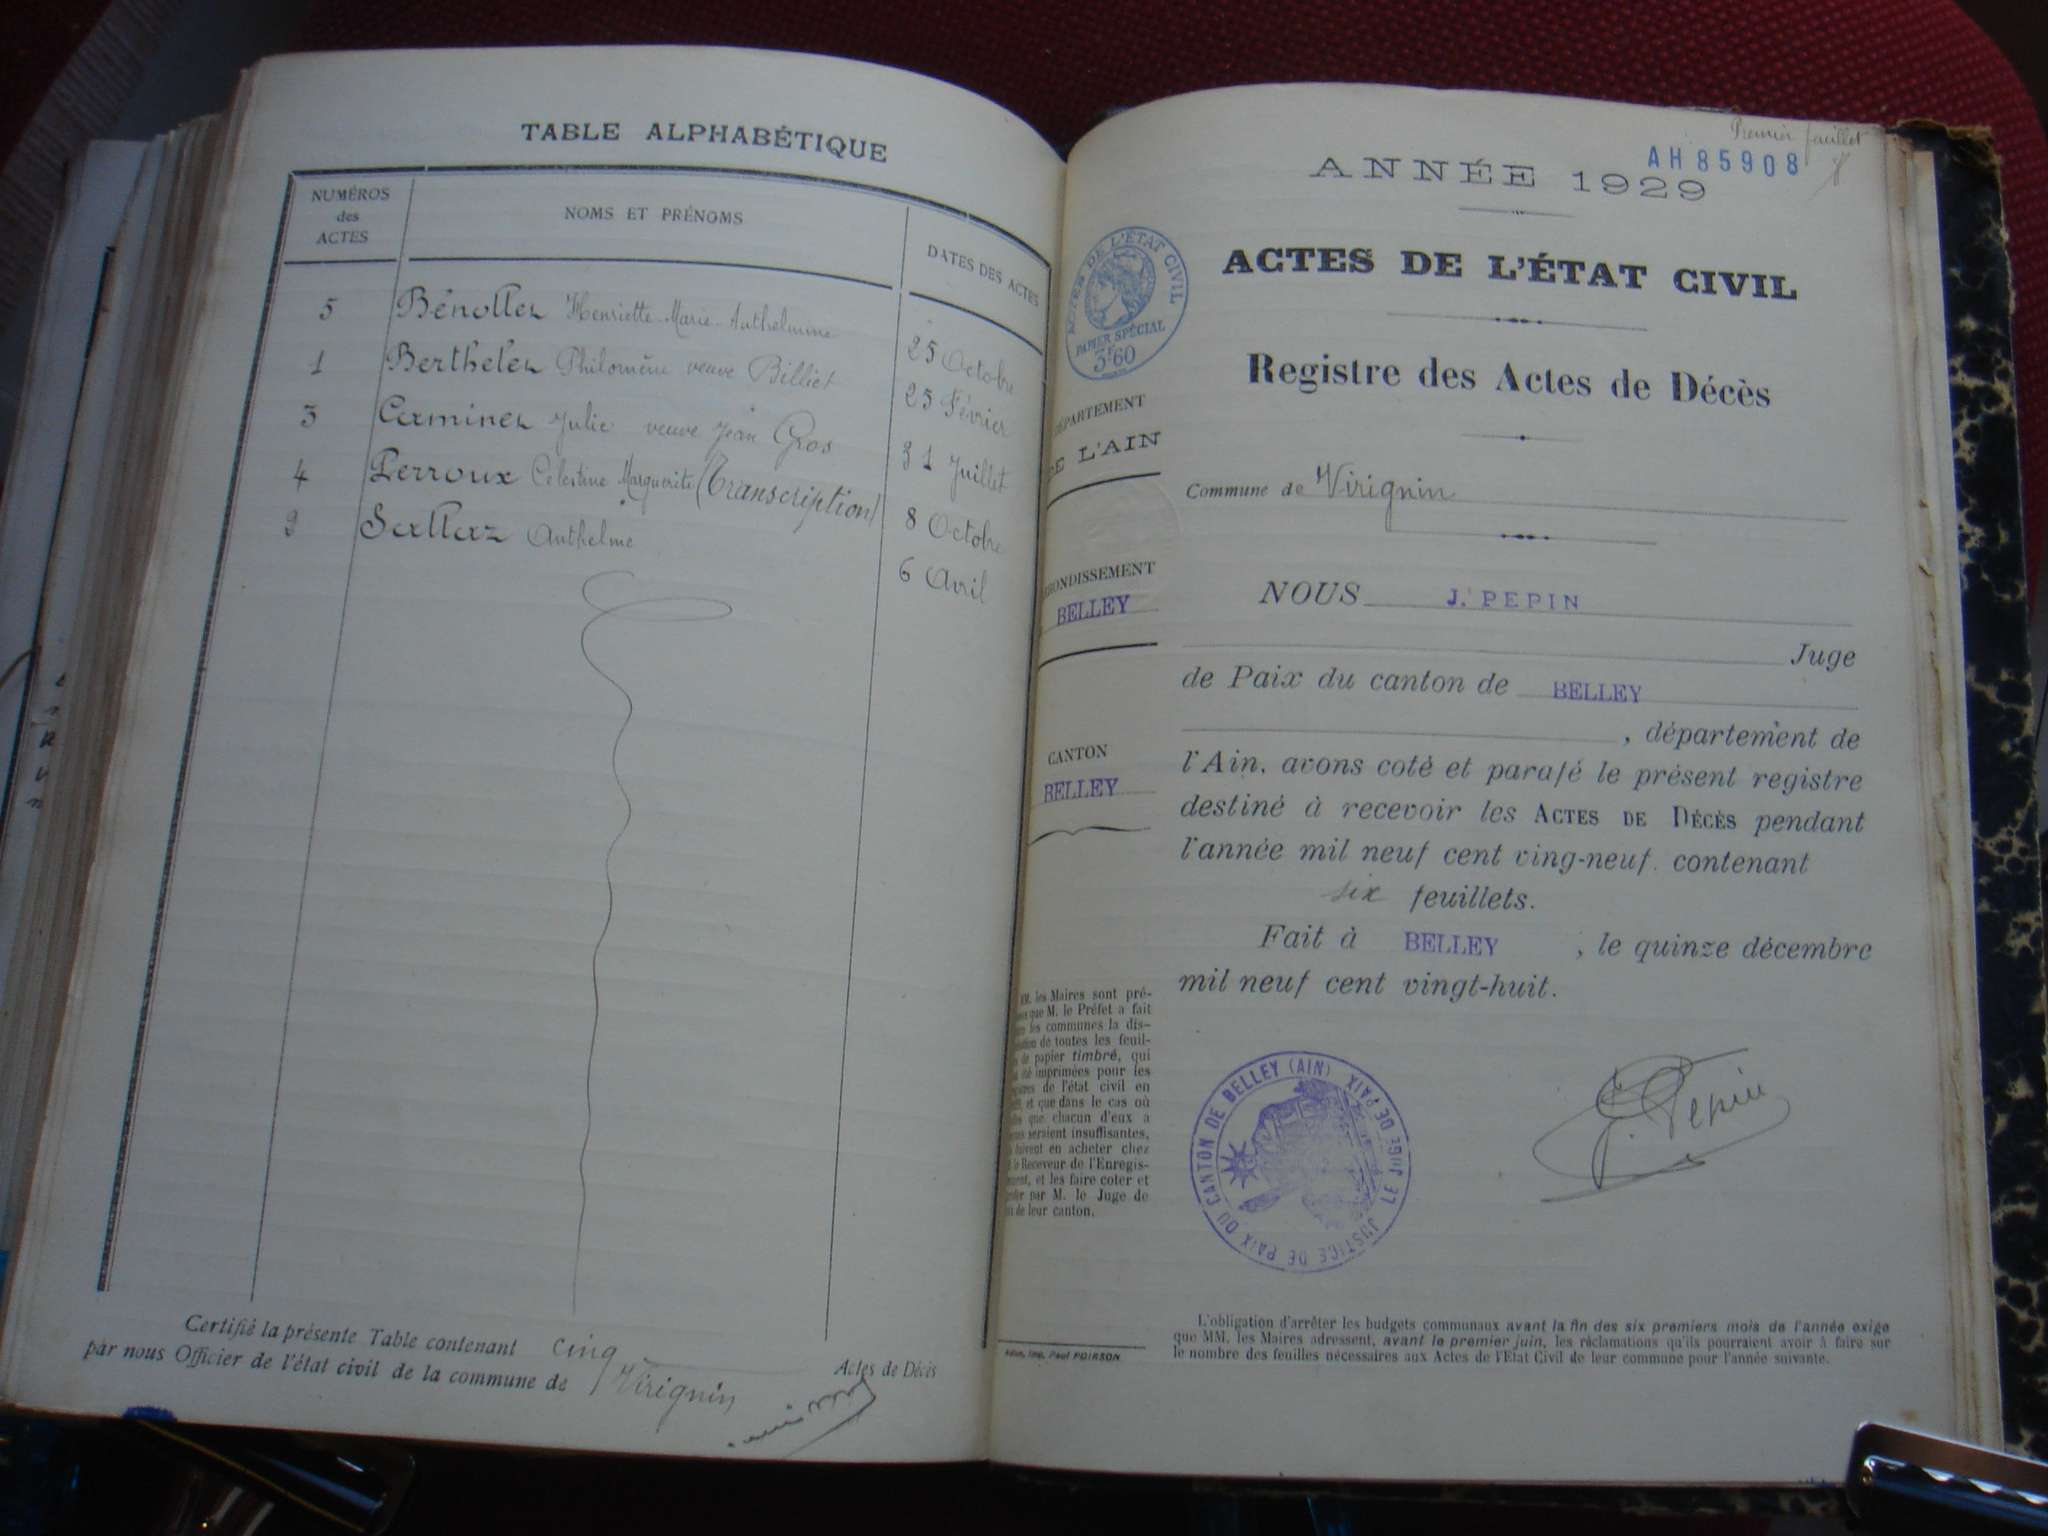 TABLE ALPHABÉTIQUE
NUMÉROS
des
ACTES
NOMS ET PRÉNOMS
DATES DES ACTES
5 Bénotter Henriette Marie Anthelmine 25 Octobre
1 Berthelet Philomène veuve Billiet 25 Février
3 Caminet Julie veuve Jean Gros 31 Juillet
4 Perroux Célestine Marguerite (Transcription) 8 Octobre
2 Sallaz Anthelme 6 Avril
Certifié la présente Table contenant cinq Actes de Décès
par nous Officier de l'état civil de la commune de Virignin
Premier feuillet
AH85908
ANNÉE 1929
ACTES DE L'ÉTAT CIVIL
PAPIER SPÉCIAL
3F60
ACTES DE L'ÉTAT CIVIL
Registre des Actes de Décès
DÉPARTEMENT
DE L'AIN
Commune de Virignin
ARRONDISSEMENT
BELLEY
NOUS J. PEPIN
Juge
de Paix du canton de BELLEY
, département de
CANTON
BELLEY
l'Ain, avons coté et parafé le présent registre
destiné à recevoir les ACTES DE DÉCÈS pendant
l'année mil neuf cent ving-neuf. contenant
six feuillets.
Fait à BELLEY, le quinze décembre
mil neuf cent vingt-huit.
MM. les Maires sont pré-
que M. le Préfet a fait
les communes la dis-
de toutes les feuil-
de papier timbré, qui
été imprimées pour les
de l'état civil en
et que dans le cas où
que chacun d'eux a
seraient insuffisantes,
doivent en acheter chez
le Receveur de l'Enregis-
et les faire coter et
par M. le Juge de
de leur canton.
JUSTICE DE PAIX DU CANTON DE BELLEY (AIN)
LE JUGE DE PAIX
J. Pepin
L'obligation d'arrêter les budgets communaux avant la fin des six premiers mois de l'année exige
que MM. les Maires adressent, avant le premier juin, les réclamations qu'ils pourraient avoir à faire sur
le nombre des feuilles nécessaires aux Actes de l'Etat Civil de leur commune pour l'année suivante.
Imp. Paul POIRSON